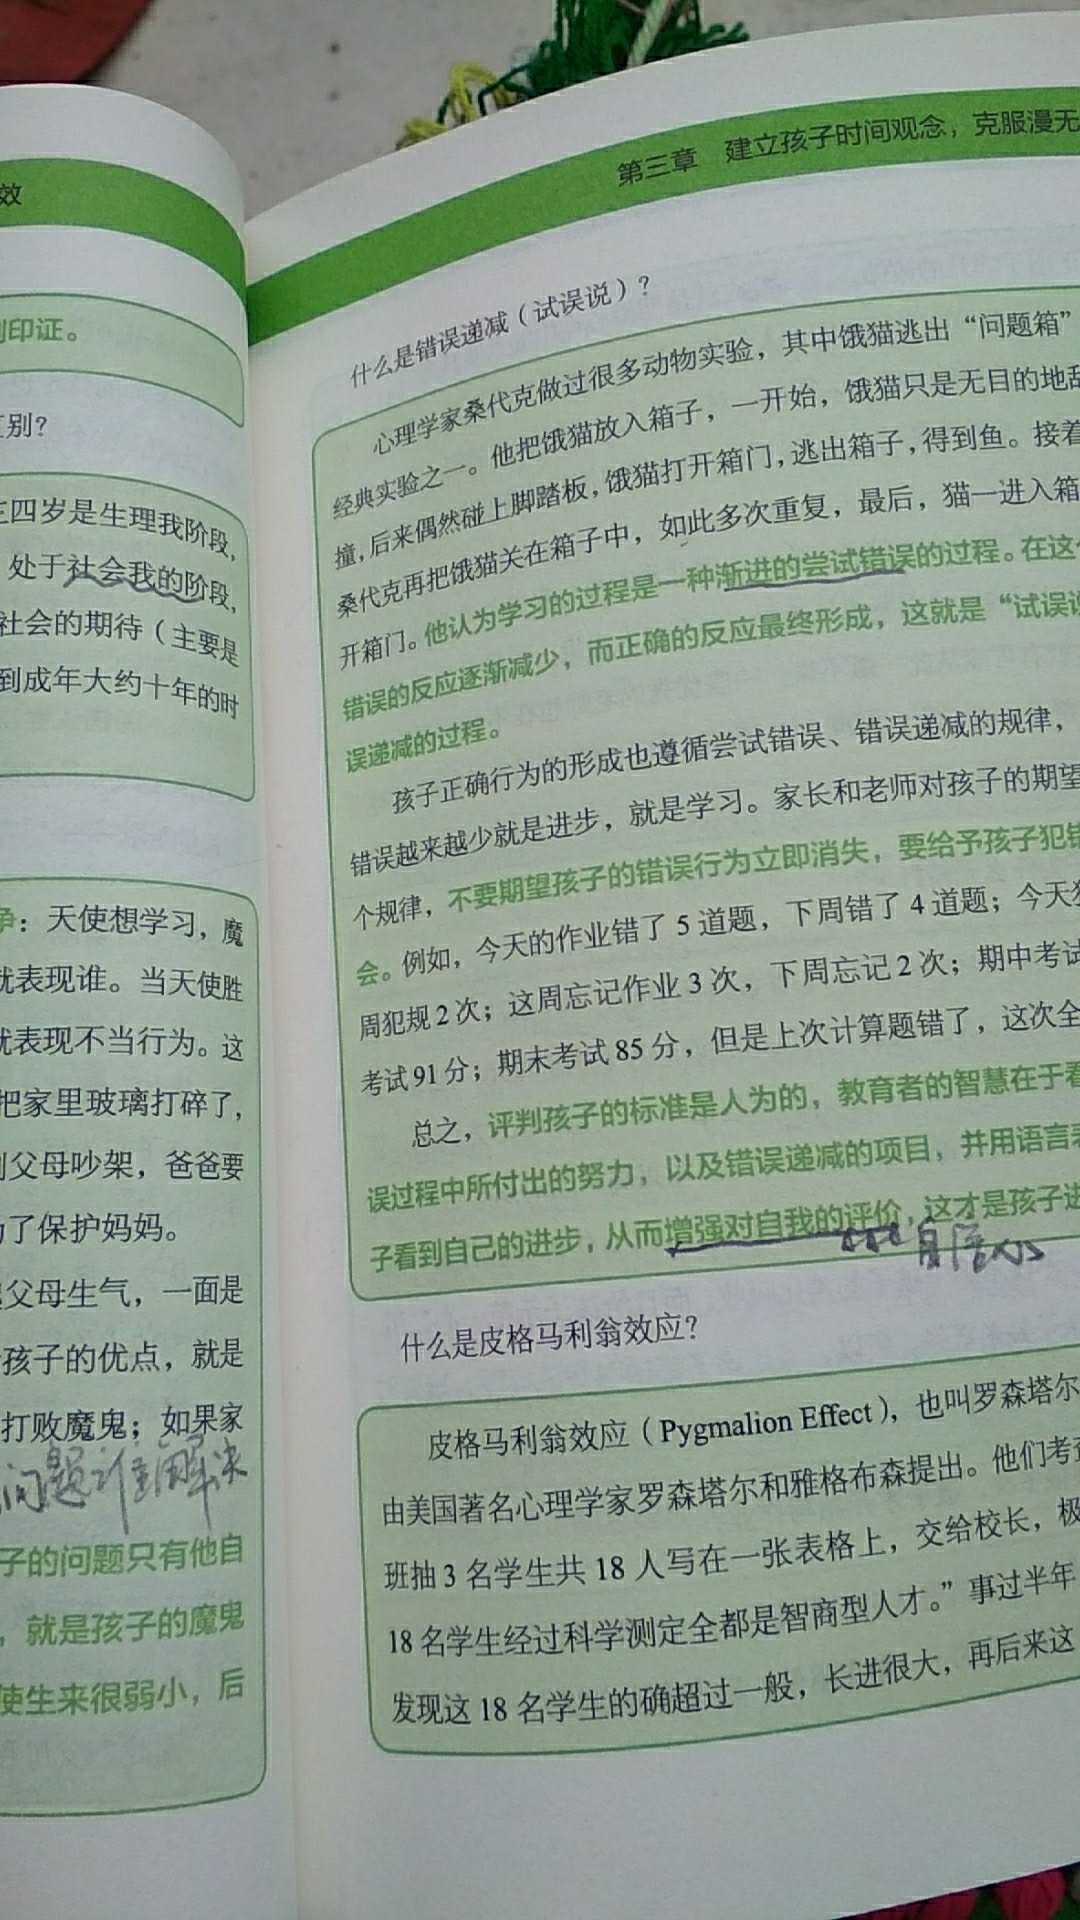 效
印证。
别?
四岁是生理我阶段,
处于社会我的阶段,
社会的期待（主要是
到成年大约十年的时
争：天使想学习，魔
就表现谁。当天使胜
就表现不当行为。这
把家里玻璃打碎了,
父母吵架，爸爸要
了保护妈妈。
父母生气，一面是
孩子的优点，就是
打败魔鬼；如果家
问题谁解决
子的问题只有他自
，就是孩子的魔鬼
使生来很弱小，后
第三章 建立孩子时间观念，克服漫无
什么是错误递减（试误说）?
心理学家桑代克做过很多动物实验，其中饿猫逃出“问题箱”
经典实验之一。他把饿猫放入箱子，一开始，饿猫只是无目的地
撞，后来偶然碰上脚踏板，饿猫打开箱门，逃出箱子，得到鱼。接着
桑代克再把饿猫关在箱子中，如此多次重复，最后，猫一进入箱
开箱门。他认为学习的过程是一种渐进的尝试错误的过程。在这
错误的反应逐渐减少，而正确的反应最终形成，这就是“试误
误递减的过程。
孩子正确行为的形成也遵循尝试错误、错误递减的规律，
错误越来越少就是进步，就是学习。家长和老师对孩子的期望
个规律，不要期望孩子的错误行为立即消失，要给予孩子犯错
会。例如，今天的作业错了5道题，下周错了4道题；今天
周犯规2次；这周忘记作业3次，下周忘记2次；期中考试
考试91分；期末考试85分，但是上次计算题错了，这次全
总之，评判孩子的标准是人为的，教育者的智慧在于看
误过程中所付出的努力，以及错误递减的项目，并用语言
子看到自己的进步，从而增强对自我的评价，这才是孩子进
自信心
什么是皮格马利翁效应?
皮格马利翁效应（Pygmalion Effect），也叫罗森塔尔
由美国著名心理学家罗森塔尔和雅格布森提出。他们考
班抽3名学生共18人写在一张表格上，交给校长，极
18名学生经过科学测定全都是智商型人才。”事过半年
发现这18名学生的确超过一般，长进很大，再后来这